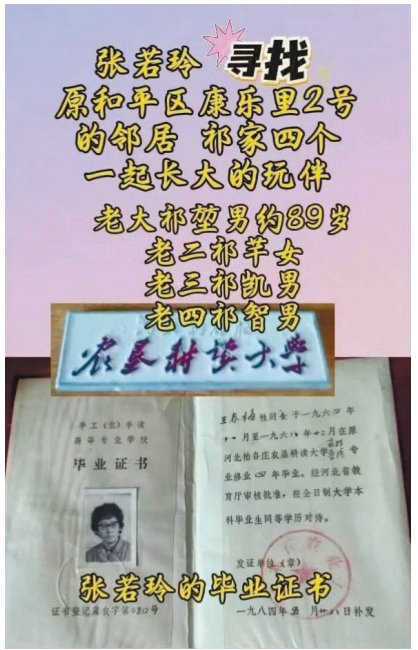 张若玲 寻找
原和平区康乐里2号
的邻居 祁家四个
一起长大的玩伴
老大祁堃男约89岁
老二祁芊女
老三祁凯男
老四祁智男
农垦耕读大学
半工(农)半读
高等专业学校
毕业证书
证书登记冀农字第080号
性别女于一九六四年
月至一九六 年十二月在原
河北柏各庄农垦耕读大学 专
业修业四年毕业。经河北省教
育厅审核批准,按全日制大学本
科毕业生同等学历对待。
发证单位(章)
一九八四年 月 八日补发
张若玲的毕业证书